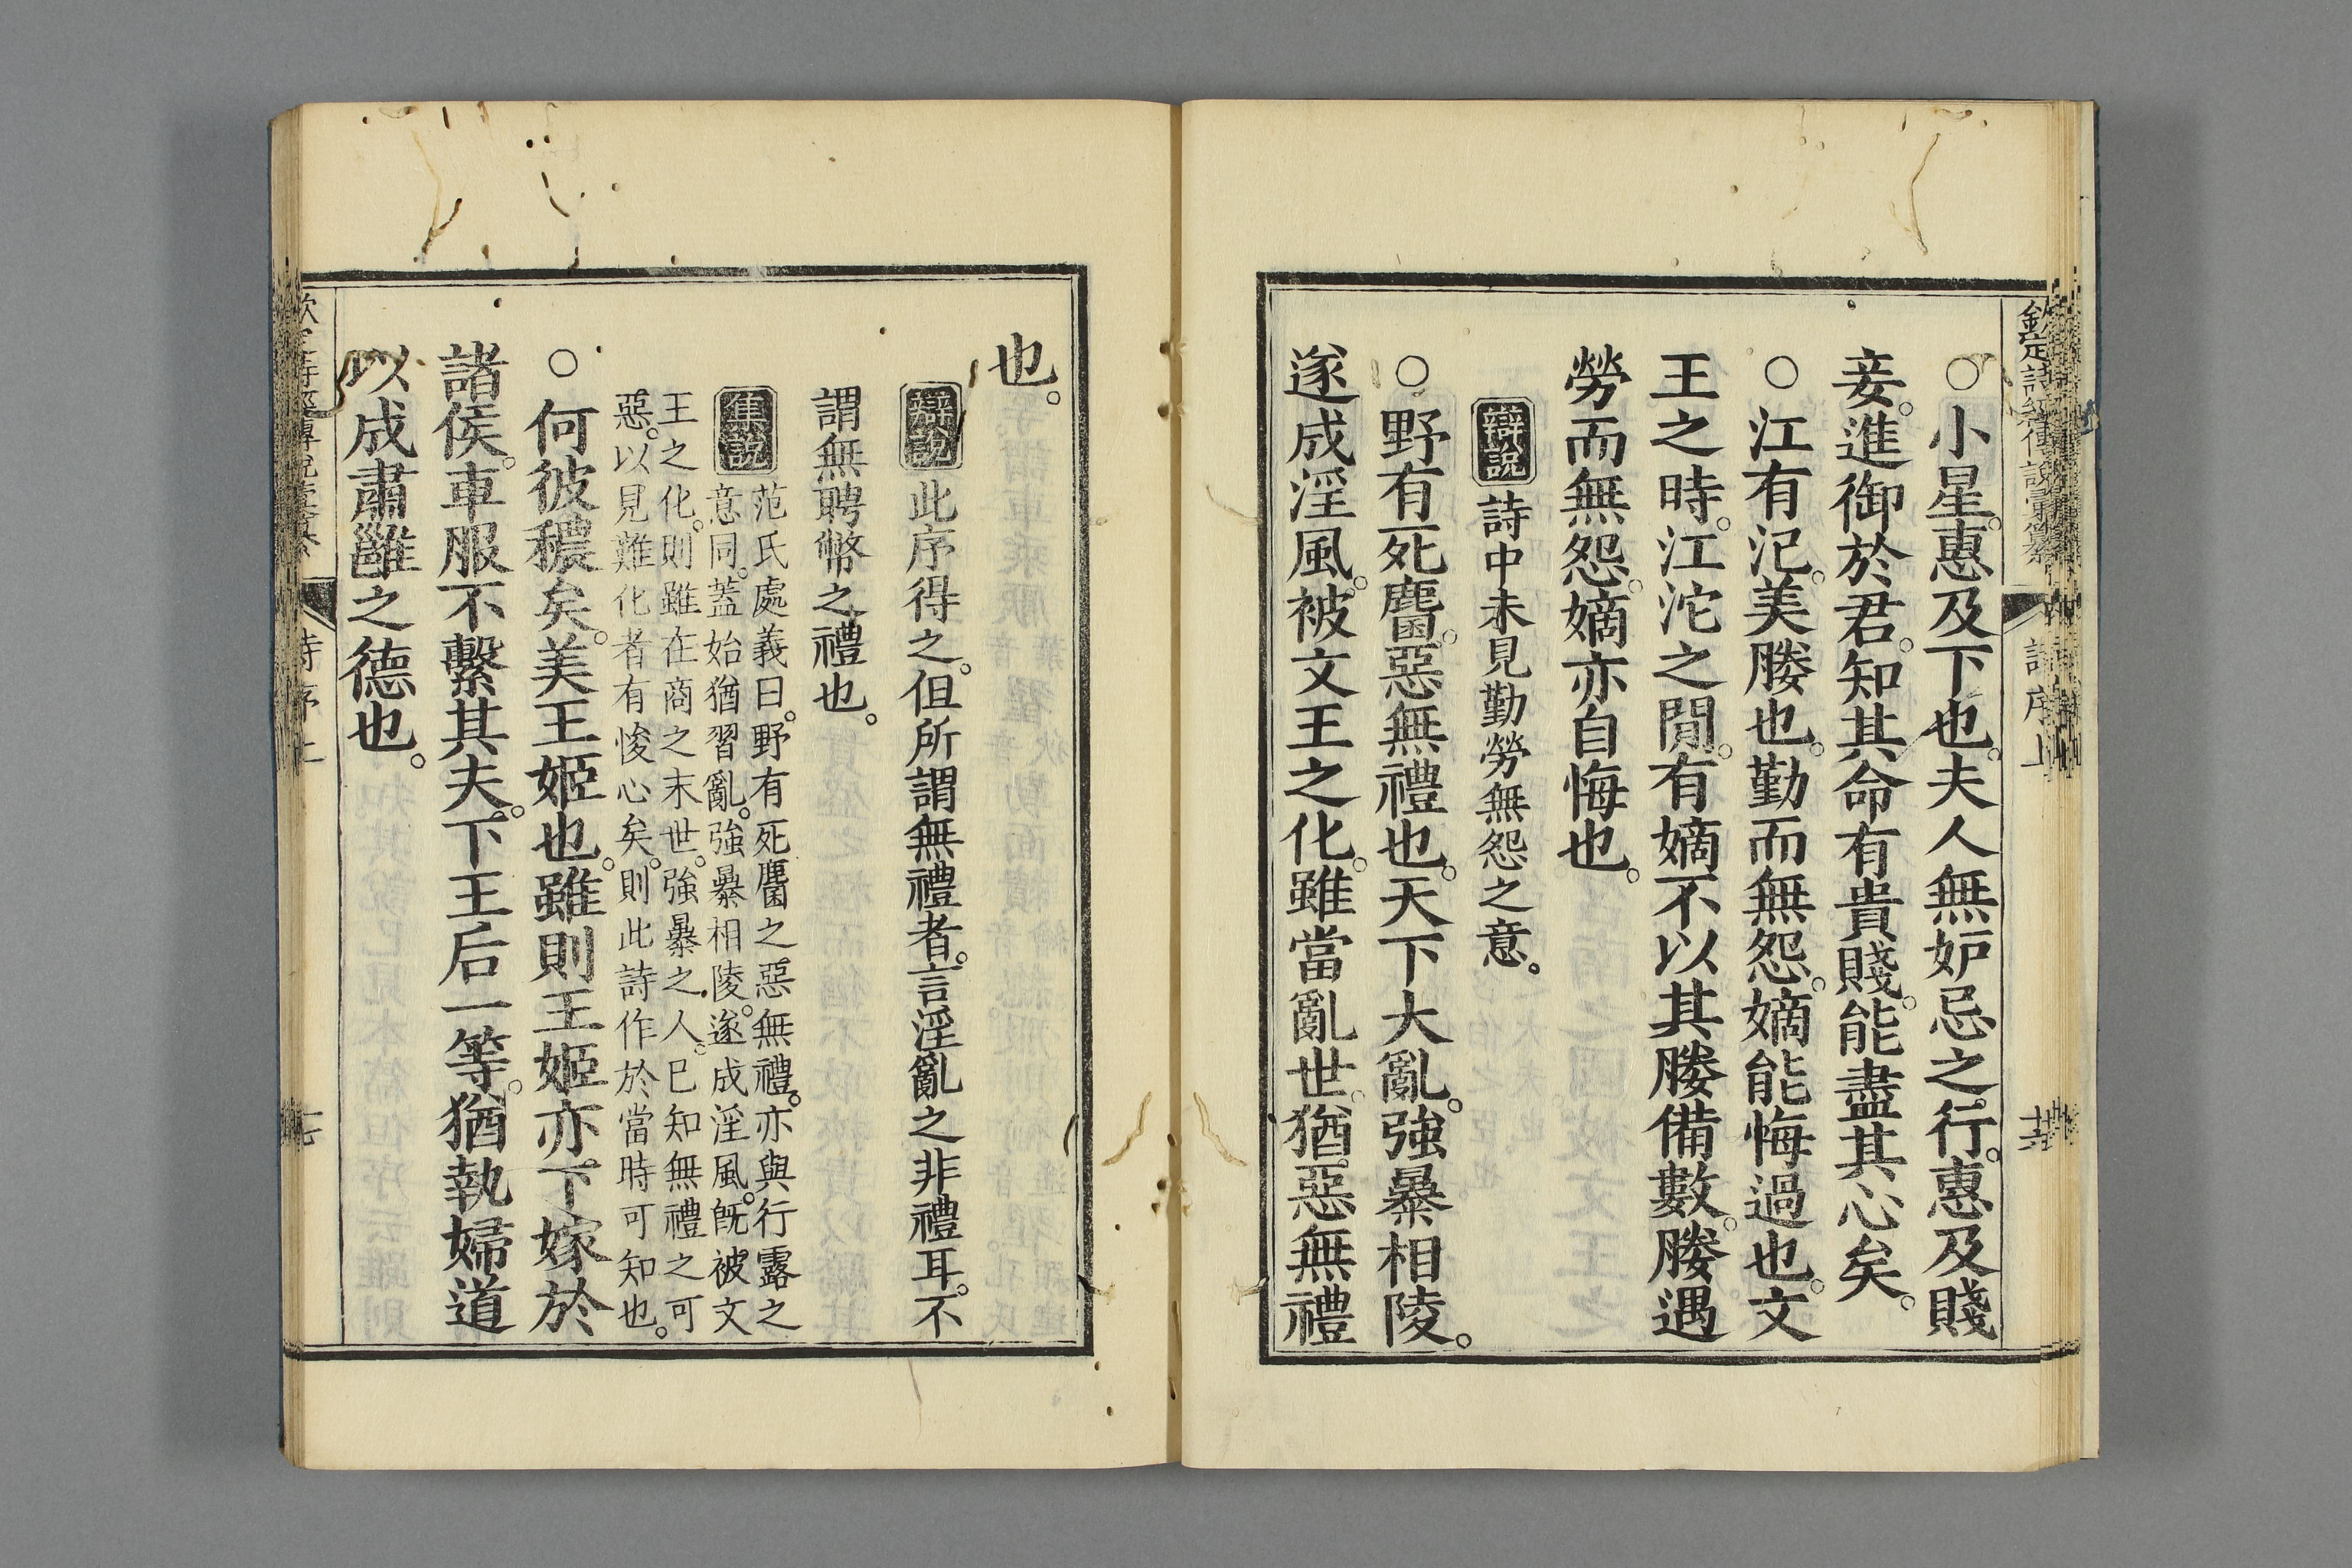 欽定詩經傳說彙纂 詩序上 廿六
○小星。惠及下也。夫人無妒忌之行。惠及賤
妾。進御於君。知其命有貴賤。能盡其心矣。
○江有汜。美媵也。勤而無怨。嫡能悔過也。文
王之時。江沱之閒。有嫡不以其媵備數。媵遇
勞而無怨。嫡亦自悔也。
辯說 詩中未見勤勞無怨之意。
○野有死麕。惡無禮也。天下大亂。強暴相陵。
遂成淫風。被文王之化。雖當亂世。猶惡無禮
也。
辯說 此序得之。但所謂無禮者。言淫亂之非禮耳。不
謂無聘幣之禮也。
集說 范氏處義曰。野有死麕之惡無禮。亦與行露之
意同。蓋始猶習亂。強暴相陵。遂成淫風。旣被文
王之化。則雖在商之末世。強暴之人。已知無禮之可
惡。以見難化者有悛心矣。則此詩作於當時可知也。
○何彼穠矣。美王姬也。雖則王姬亦下嫁於
諸侯。車服不繫其夫。下王后一等。猶執婦道
以成肅雝之德也。
詩序上